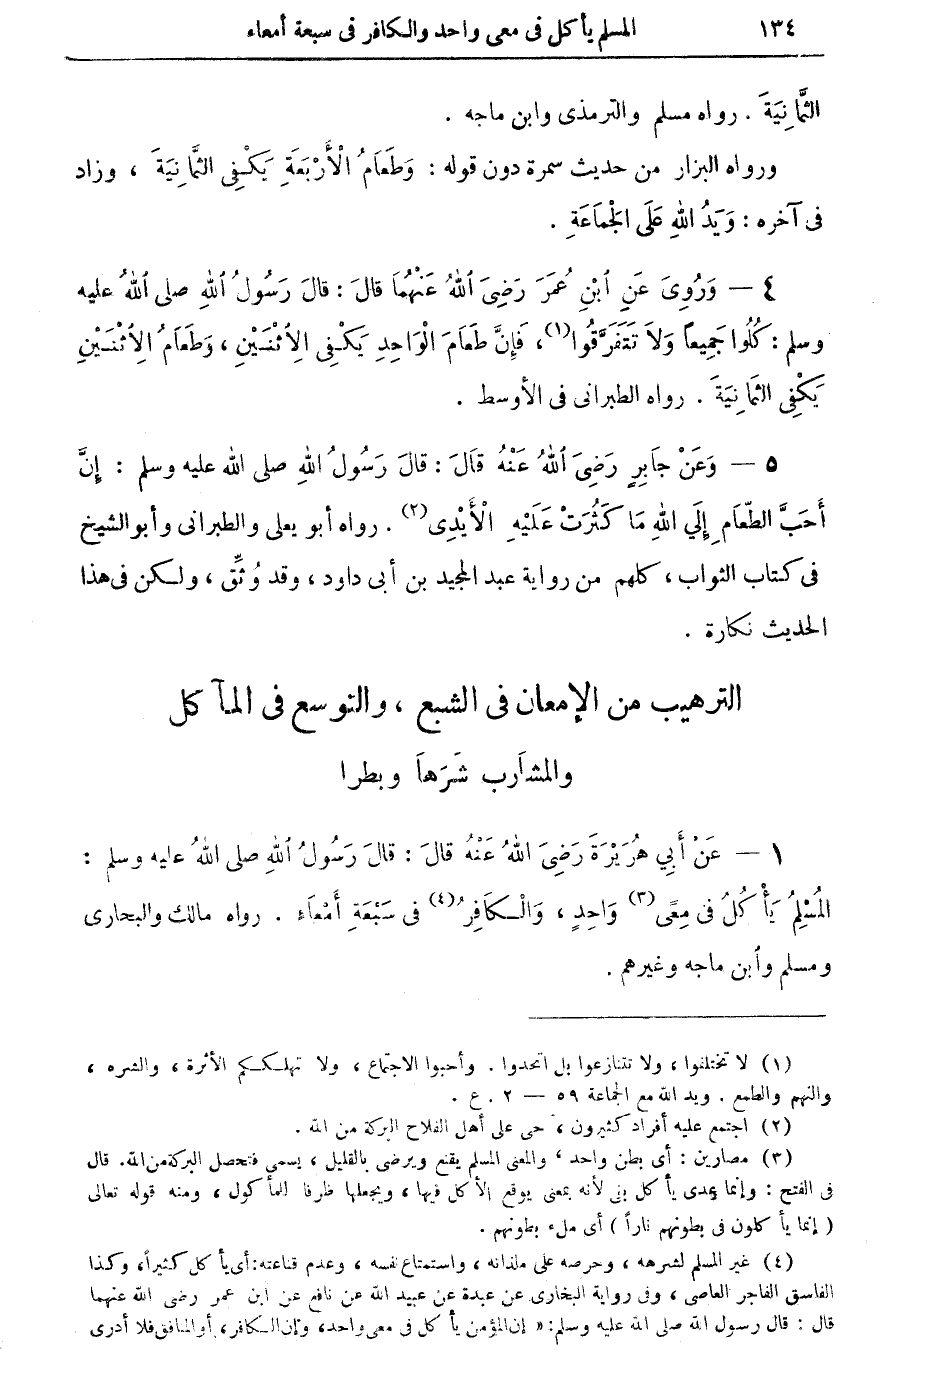 ١٣٤ المسلم يأكل فى معى واحد والكافر فى سبعة أمعاء
الثَّمَانِيَةَ . رواه مسلم والترمذى وابن ماجه .
ورواه البزار من حديث سمرة دون قوله : وَطَعَامُ الْأَرْبَعَةِ يَكْفِى الثَّمَانِيَةَ ، وزاد
فى آخره : وَيَدُ اللهِ عَلَى الْجَمَاعَةِ .
٤ — وَرُوِىَ عَنِ ابْنِ عُمَرَ رَضِىَ اللهُ عَنْهُمَا قالَ : قالَ رَسُولُ اللهِ صلى اللهُ عليه
وسلم : كُلُوا جَمِيعاً وَلاَ تَتَفَرَّقُوا(١)، فَإِنَّ طَعَامَ الْوَاحِدِ يَكْفِى الِاثْنَيْنِ ، وَطَعَامُ الِاثْنَيْنِ
يَكْفِى الثَّمَانِيَةَ . رواه الطبرانى فى الأوسط .
٥ — وَعَنْ جَابِرٍ رَضِىَ اللهُ عَنْهُ قالَ : قالَ رَسُولُ اللهِ صلى الله عليه وسلم : إِنَّ
أَحَبَّ الطَّعَامِ إِلَي اللهِ مَا كَثُرَتْ عَلَيْهِ الْأَيْدِى(٢) . رواه أبو يعلى والطبرانى وأبو الشيخ
فى كتاب الثواب ، كلهم من رواية عبد المجيد بن أبى داود ، وقد وُثِّق ، ولكن فى هذا
الحديث نكارة .
الترهيب من الإمعان فى الشبع ، والتوسع فى المآكل
والمشارب شَرَهاً وبطرا
١ — عَنْ أَبِي هُرَيْرَةَ رَضِىَ اللهُ عَنْهُ قالَ : قالَ رَسُولُ اللهِ صلى اللهُ عليه وسلم :
الْمُسْلِمُ يَأْكُلُ فى مِعًى(٣) وَاحِدٍ ، وَالْكَافِرُ(٤) فى سَبْعَةِ أَمْعَاءٍ . رواه مالك والبخارى
ومسلم وابن ماجه وغيرهم .
(١) لا تختلفوا ، ولا تتنازعوا بل اتحدوا . وأحبوا الاجتماع ، ولا تهلككم الأثرة ، والشره ،
والنهم والطمع . ويد الله مع الجماعة ٥٩ — ٢ . ع .
(٢) اجتمع عليه أفراد كثيرون ، حى على أهل الفلاح البركة من الله .
(٣) مصارين : أى بطن واحد ، والمعنى المسلم يقنع ويرضى بالقليل ، يسمى فتحصل البركة من الله. قال
فى الفتح : وإنما يمدى يأكل بنى لأنه بمعنى يوقع الأكل فيها ، ويجعلها ظرفا للمأكول ، ومنه قوله تعالى
( إنما يأكلون فى بطونهم ناراً ) أى ملء بطونهم .
(٤) غير المسلم لشرهه ، وحرصه على ملذاته ، واستمتاع نفسه ، وعدم قناعته : أى يأكل كثيراً، وكذا
الفاسق الفاجر العاصى ، وفى رواية البخارى عن عبدة عن عبيد الله عن نافع عن ابن عمر رضى الله عنهما
قال : قال رسول الله صلى الله عليه وسلم : « إن المؤمن يأكل فى معى واحد، وإن الكافر، أو المنافق فلا أدرى